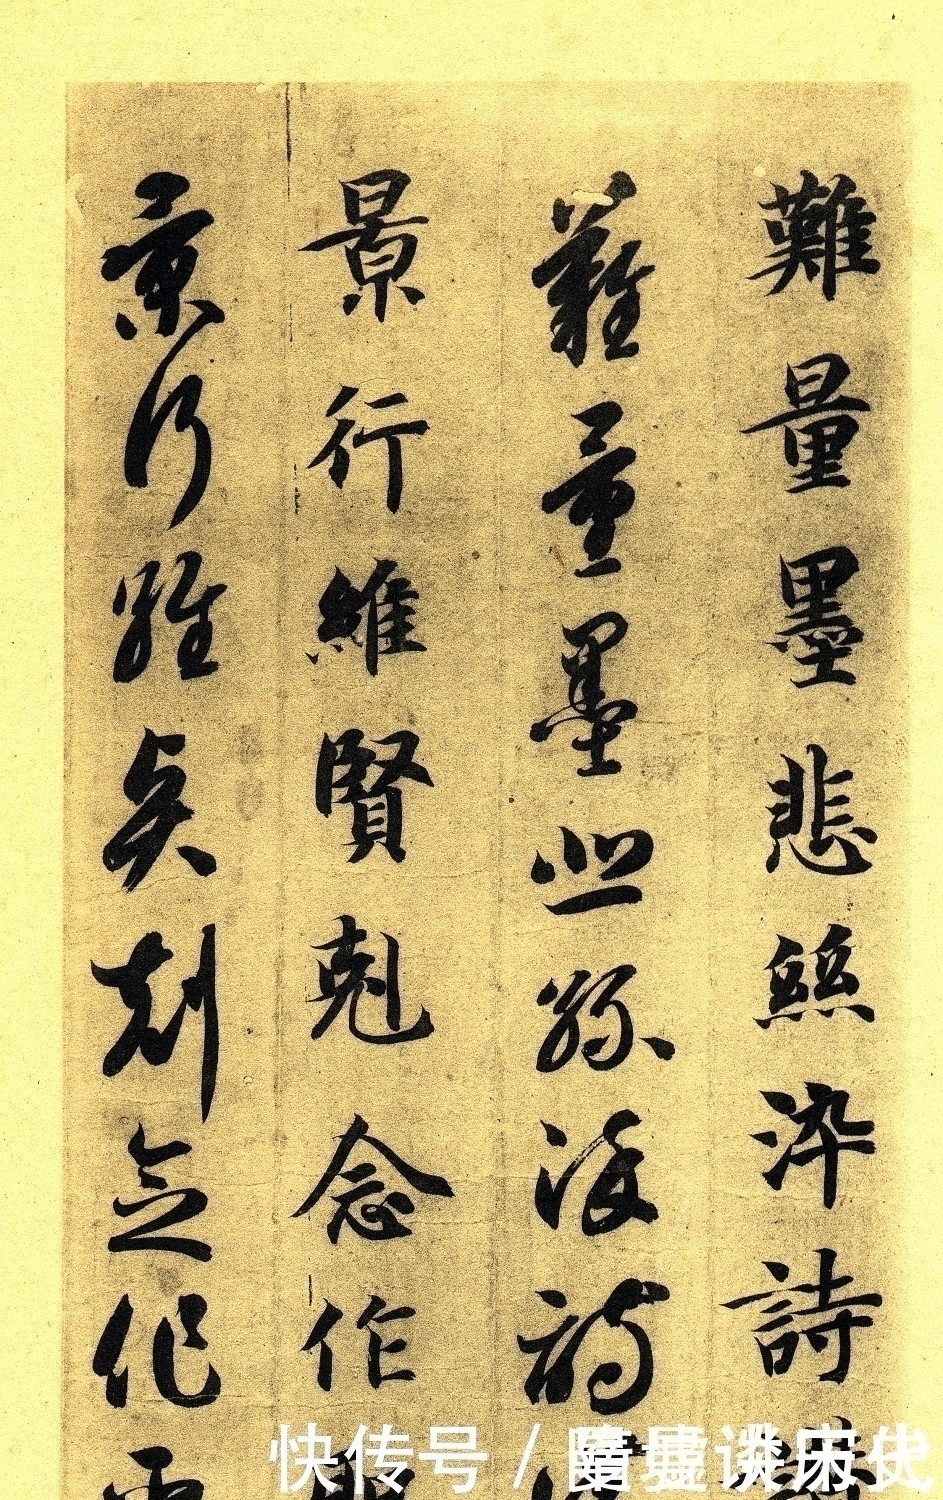 難量墨悲絲淬詩
難量墨悲絲淬詩
景行維賢剋念作
景行維賢剋念作
快传号/